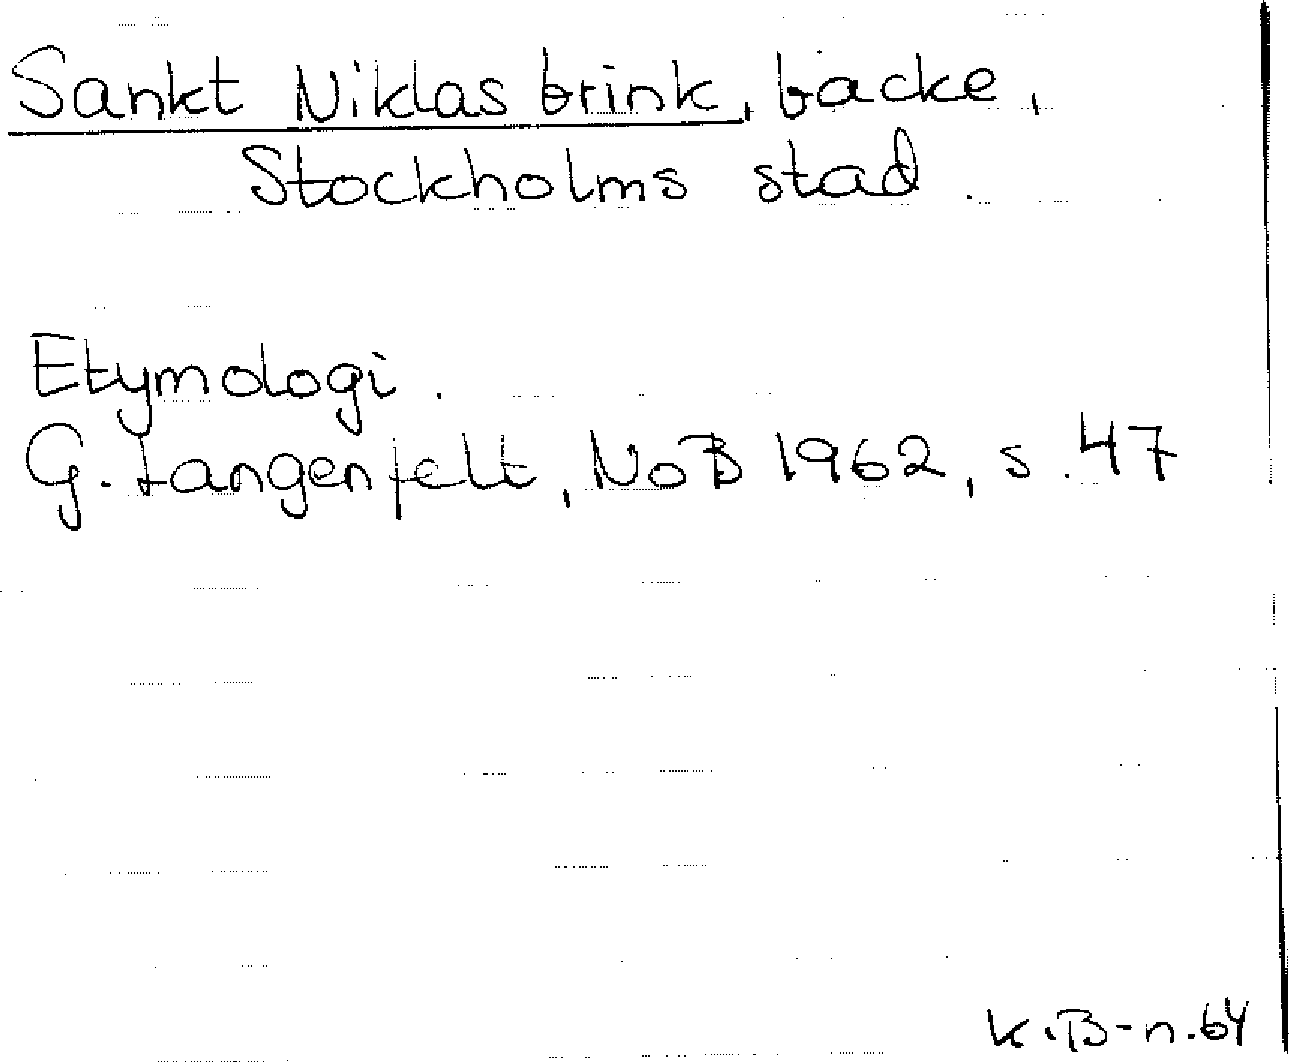 Sankt Niklas brink, backe,
Stockholms stad.
Etymologi.
G. Langenfelt, NoB 1962, s. 47
K.B-n.64